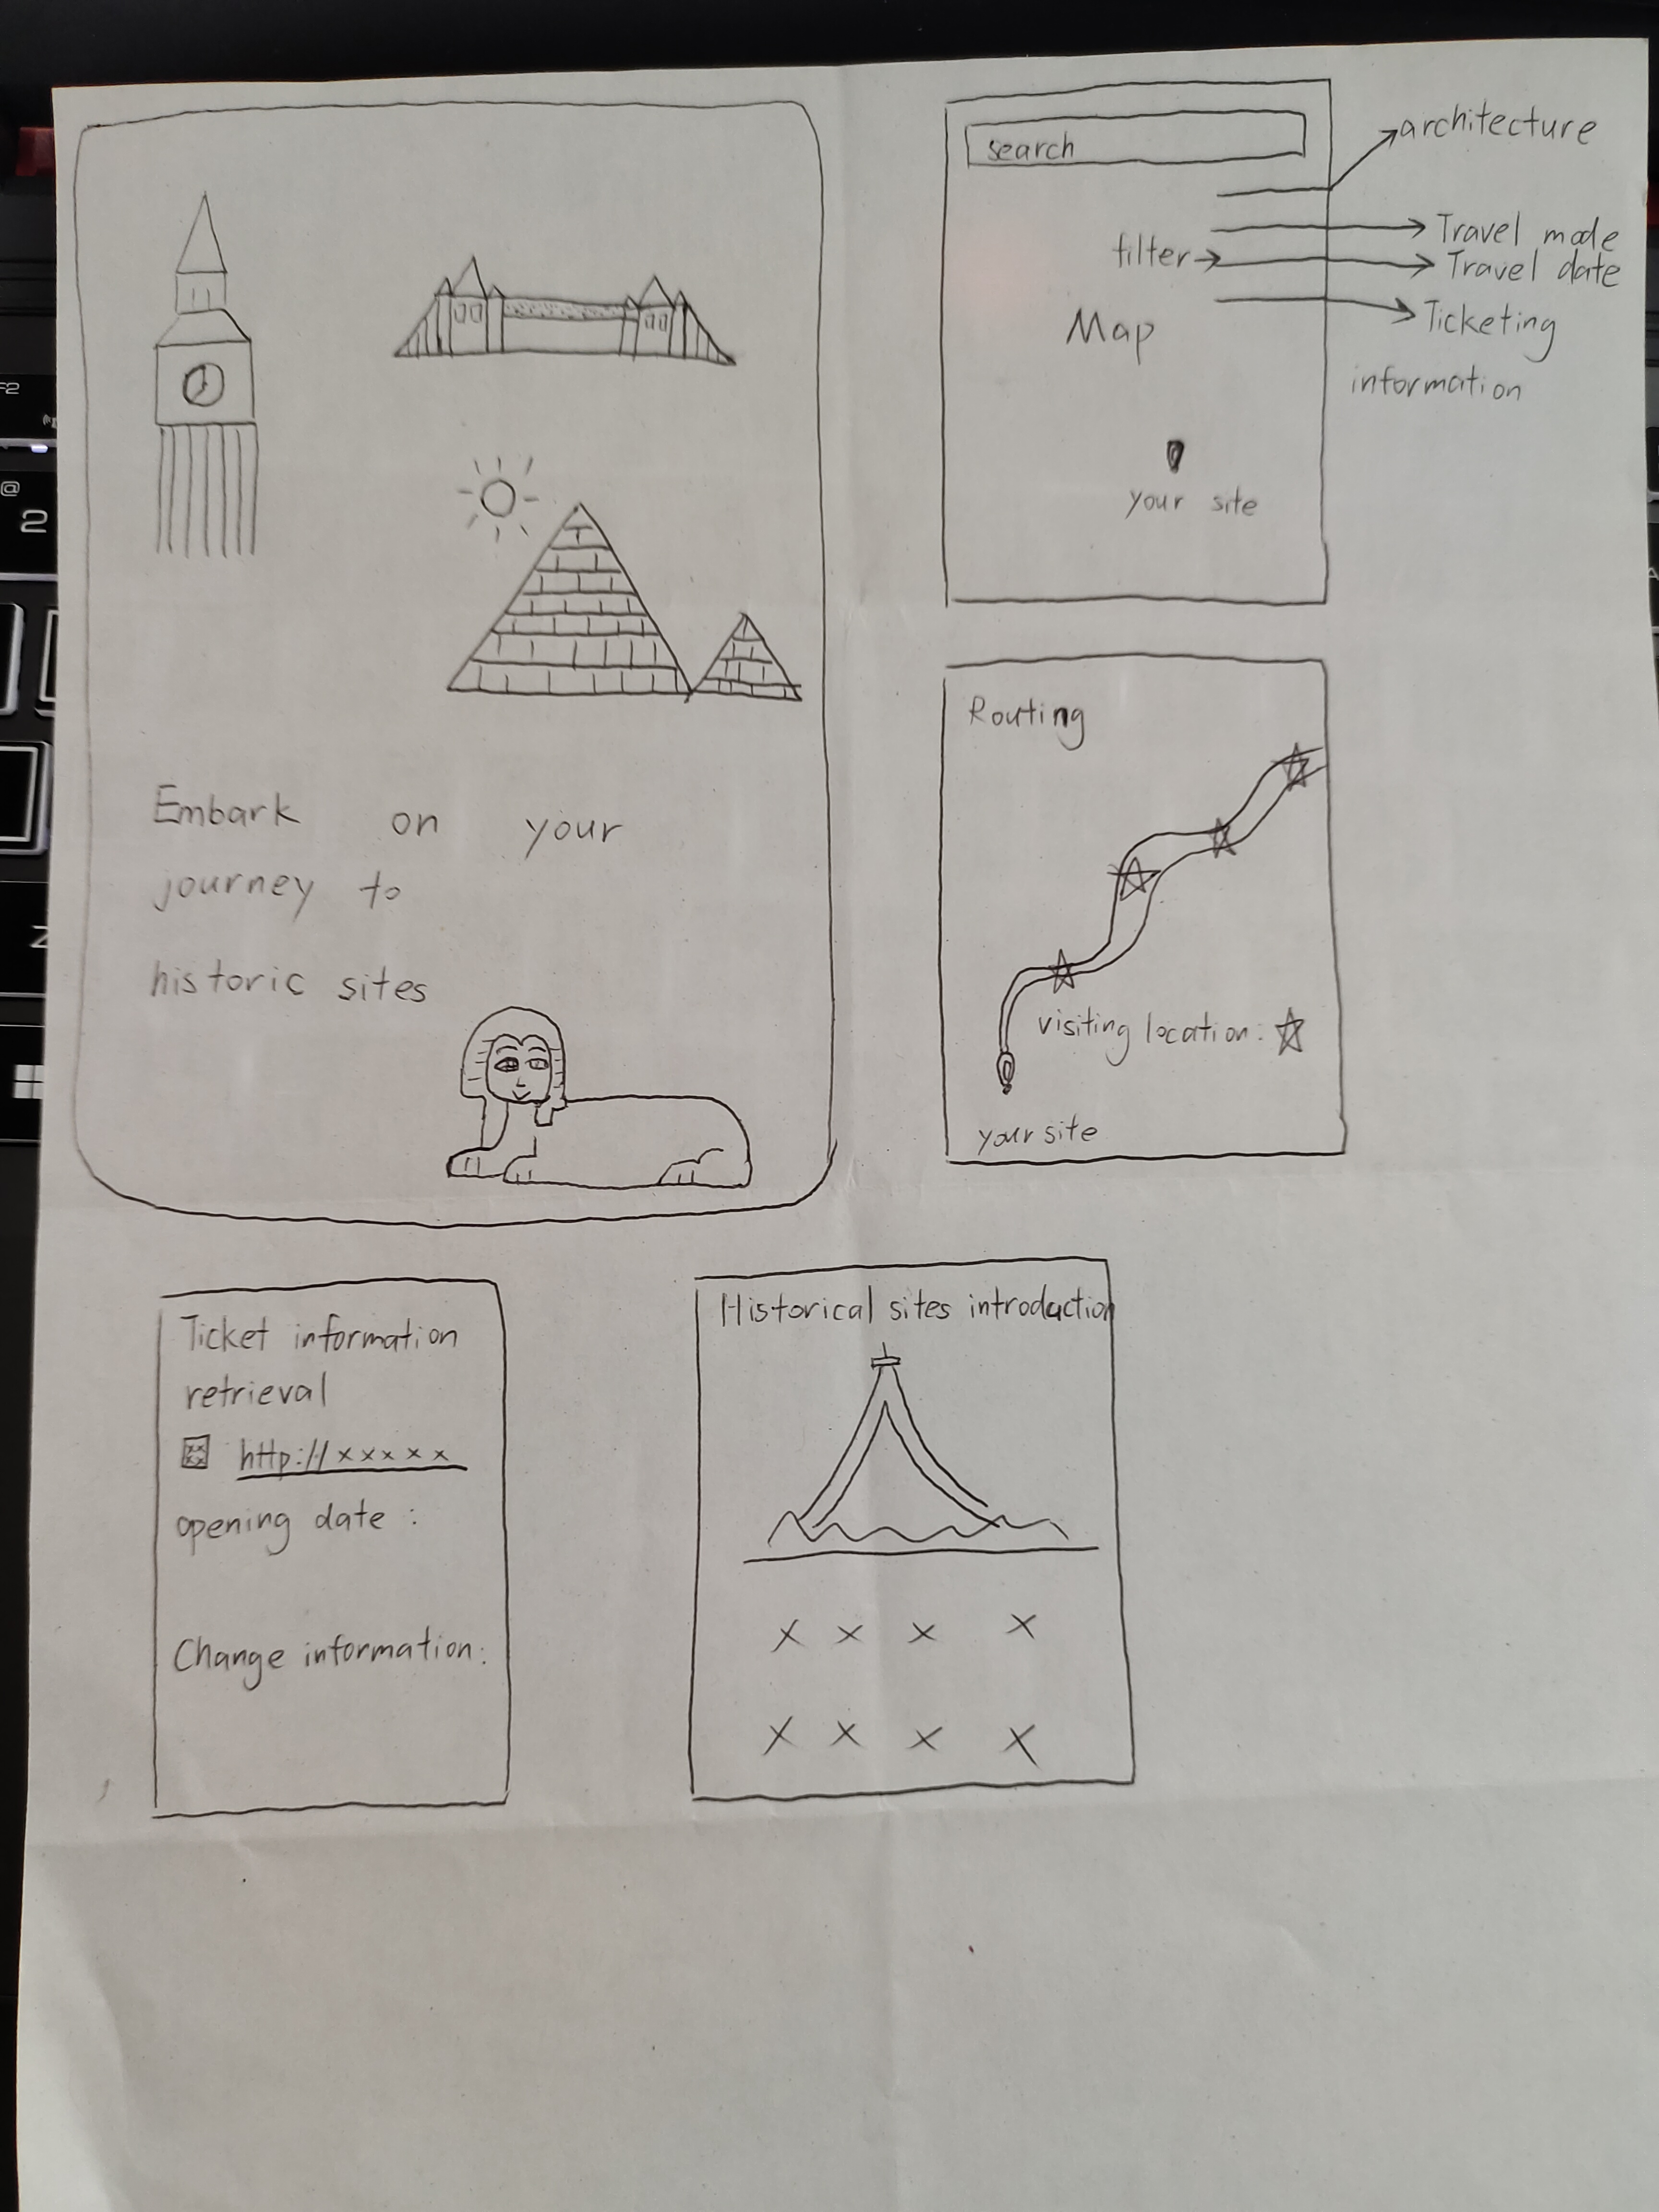 Embark on your
journey to
historic sites
search
architecture
Travel mode
filter
Travel date
Ticketing
information
Map
your site
Routing
visiting location:
your site
Ticket information
retrieval
http://xxxxx
opening date :
Change information:
Historical sites introduction
x x x x
x x x x
F2
@
2
Z